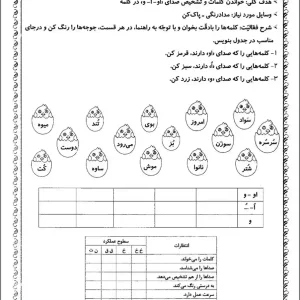 - هدف کلی: خواندن کلمات و تشخیص صدای (او - اُ - و) در کلمه
- وسایل مورد نیاز: مدادرنگی - پاک‌کن
- شرح فعالیت: کلمه‌ها را با دقت بخوان و با توجه به راهنما، در هر قسمت، جوجه‌ها را رنگ کن و در جای مناسب در جدول بنویس.
۱- کلمه‌هایی که صدای «و» دارند، قرمز کن.
۲- کلمه‌هایی را که صدای «او» دارند، سبز کن.
۳- کلمه‌هایی را که صدای «اُ» دارند، زرد کن.
سواد امروز بوی تُند میوه
سُرسُره سوزن بُز می‌رود دوست
شُتر نانوا موش ساوه کُت
او - و
اُ - ـُ
و
انتظارات سطوح عملکرد
خ‌خ خ ق‌ق ن‌ت
کلمات را می‌خواند.
صداها را می‌شناسد.
صداها را تشخیص می‌دهد.
به درستی رنگ می‌کند
سرعت عمل دارد.